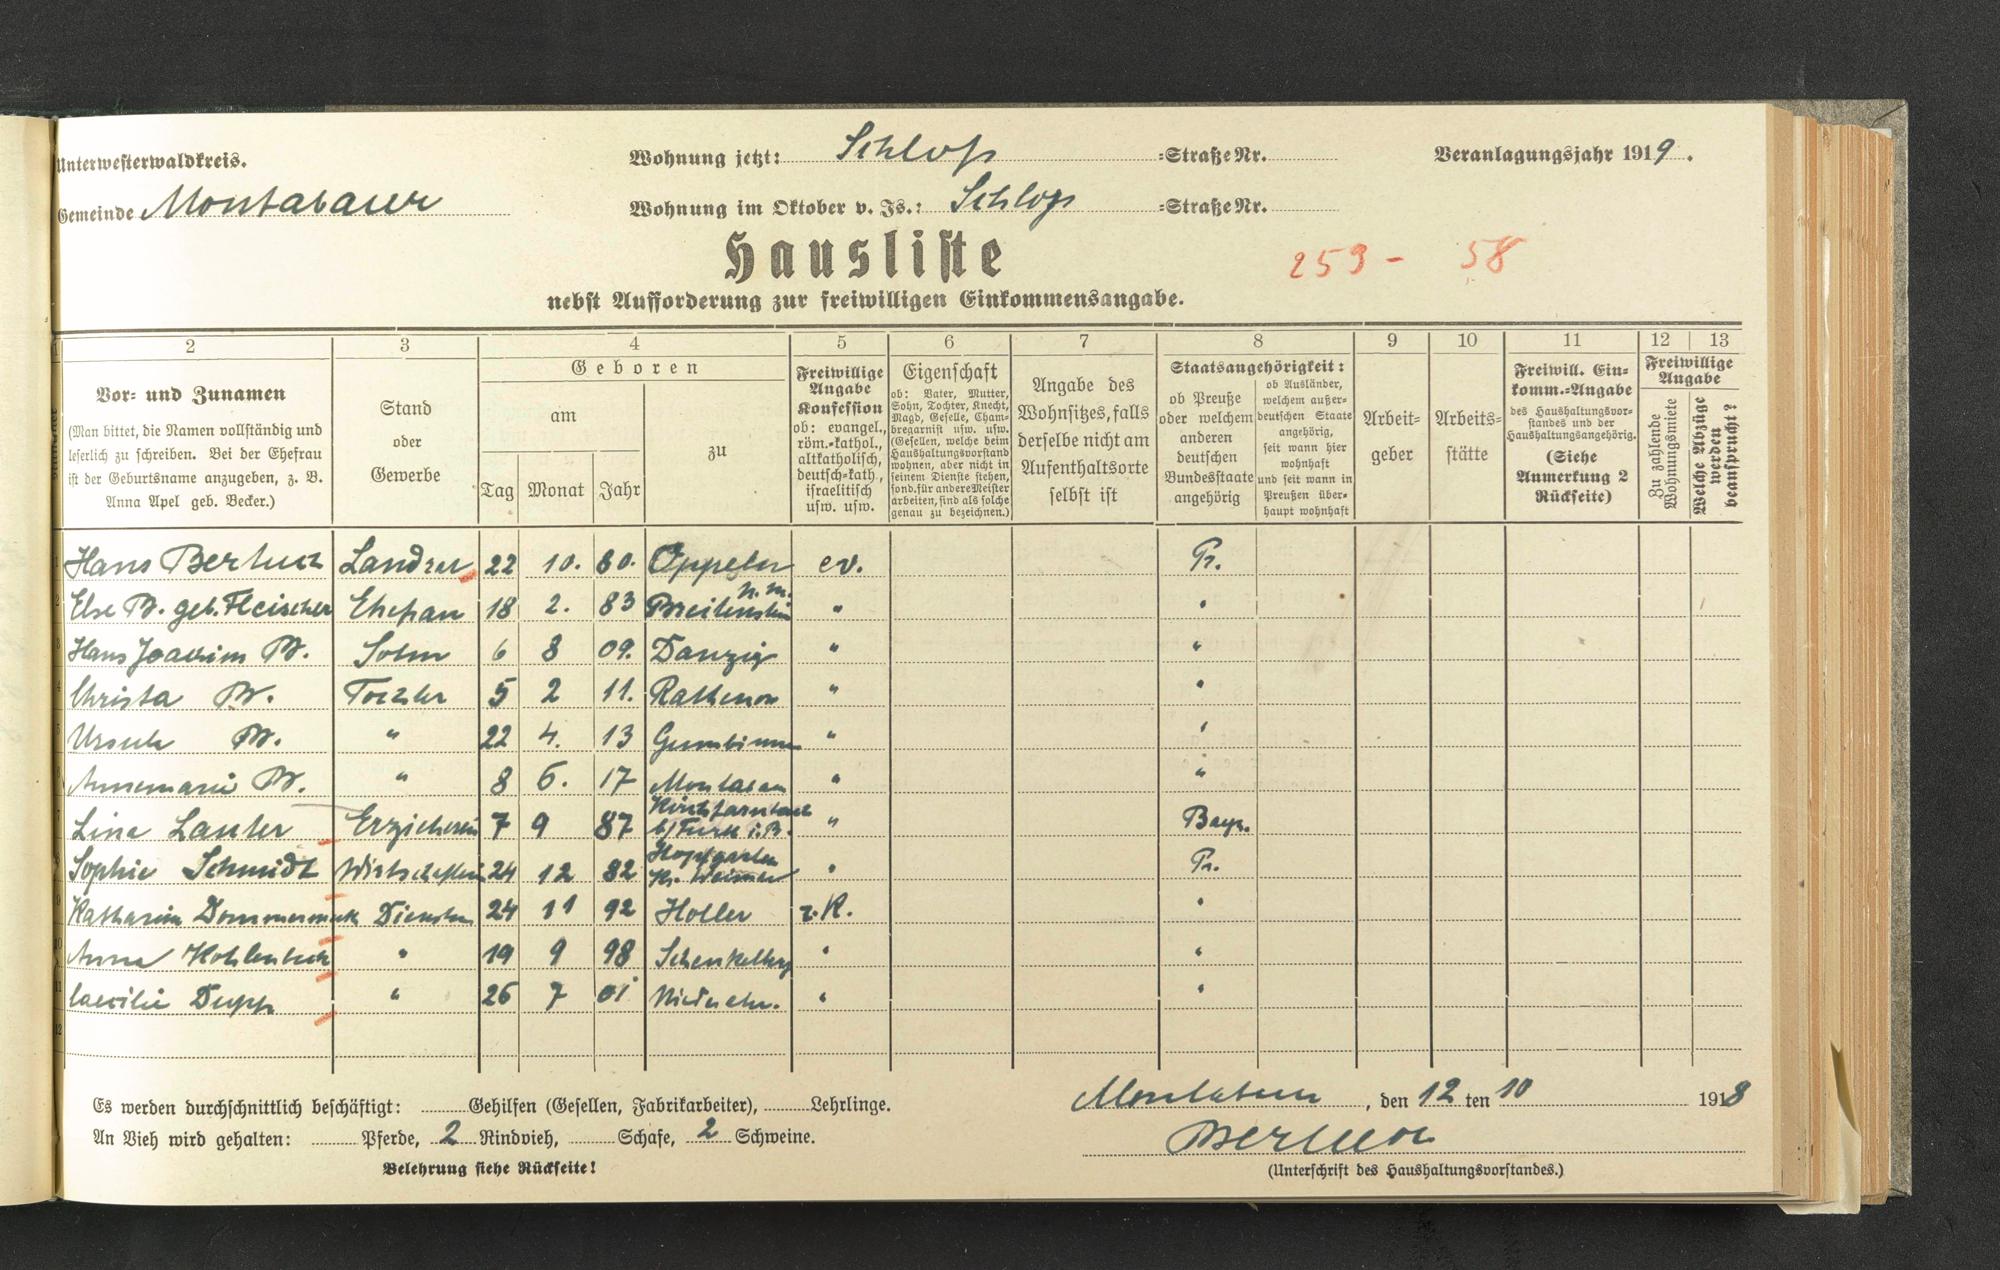 Unterwesterwaldkreis.
Wohnung jetzt: Schloß =Straße Nr.
Veranlagungsjahr 1919.
Gemeinde Montabaur
Wohnung im Oktober v. Js.: Schloß =Straße Nr.
Hausliste
259 - 58
nebst Aufforderung zur freiwilligen Einkommensangabe.
2 3 4 5 6 7 8 9 10 11 12 13
Vor- und Zunamen
(Man bittet, die Namen vollständig und
leserlich zu schreiben. Bei der Ehefrau
ist der Geburtsname anzugeben, z. B.
Anna Apel geb. Becker.)
Stand
oder
Gewerbe
Geboren
am
Tag Monat Jahr
zu
Freiwillige
Angabe
Konfession
ob: evangel.,
röm.-kathol.,
altkatholisch,
deutsch-kath.,
israelitisch
usw. usw.
Eigenschaft
ob: Vater, Mutter,
Sohn, Tochter, Knecht,
Magd, Geselle, Cham-
bregarnist usw. usw.
(Gesellen, welche beim
Haushaltungsvorstand
wohnen, aber nicht in
seinem Dienste stehen,
sond. für andere Meister
arbeiten, sind als solche
genau zu bezeichnen.)
Angabe des
Wohnsitzes, falls
derselbe nicht am
Aufenthaltsorte
selbst ist
Staatsangehörigkeit:
ob Preuße
oder welchem
anderen
deutschen
Bundesstaate
angehörig
ob Ausländer,
welchem außer-
deutschen Staate
angehörig,
seit wann hier
wohnhaft
und seit wann in
Preußen über-
haupt wohnhaft
Arbeit-
geber
Arbeits-
stätte
Freiwill. Ein-
komm.-Angabe
des Haushaltungsvor-
standes und der
Haushaltungsangehörig.
(Siehe
Anmerkung 2
Rückseite)
Freiwillige
Angabe
Zu zahlende
Wohnungsmiete
Welche Abzüge
werden
beansprucht?
1 Hans Bertuch Landrat 22 10. 80. Oppeln ev. Pr.
2 Else B. geb. Fleischer Ehefrau 18 2. 83 Breitenstein N. M. " "
3 Hans Joachim B. Sohn 6 8 09. Danzig " "
4 Christa B. Tochter 5 2 11. Rathenow " "
5 Ursula B. " 22 4. 13 Gumbinnen " "
6 Annemarie B. " 8 6. 17 Montabaur " "
7 Lina Lauter Erzieherin 7 9 87 b/Fürth i. B. " Bayr.
8 Sophie Schmidt Wirtschafterin 24 12 82 Hopfgarten Kr. Weimar " Pr.
9 Katharina Dommermuth Dienstm. 24 11 92 Holler r. K. "
10 Anna Kohlenbach " 19 9 98 Schenkelberg " "
11 Caecilie Dupp " 26 7 01 Niederahr. " "
12
Es werden durchschnittlich beschäftigt: Gehilfen (Gesellen, Fabrikarbeiter), Lehrlinge.
Montabaur, den 12 ten 10 1918
An Vieh wird gehalten: Pferde, 2 Rindvieh, Schafe, 2 Schweine.
Bertuch
Belehrung siehe Rückseite!
(Unterschrift des Haushaltungsvorstandes.)